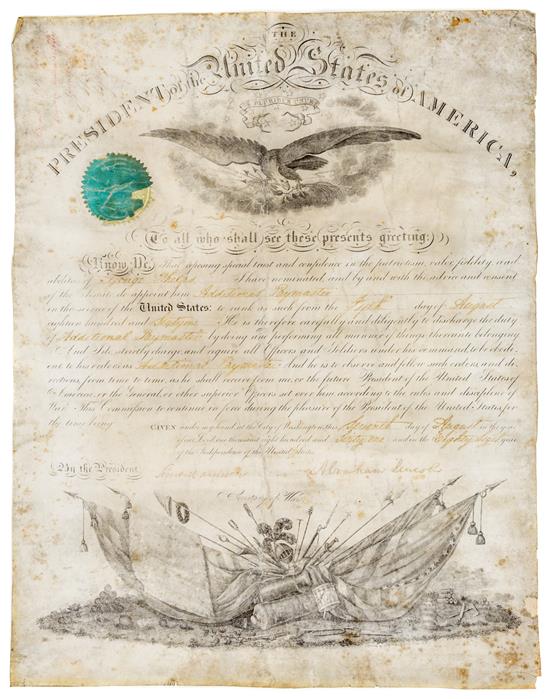 THE
PRESIDENT of the United States of AMERICA,
E PLURIBUS UNUM
To all who shall see these presents greeting:
Know Ye, That reposing special trust and confidence in the patriotism, valor, fidelity, and
abilities of I have nominated, and by and with the advice and consent
of the Senate, do appoint him Additional Paymaster
in the service of the United States: to rank as such from the day of August
eighteen hundred and Sixty one He is therefore carefully and diligently to discharge the duty
of Additional Paymaster by doing and performing all manner of things thereunto belonging.
And I do strictly charge, and require all Officers and Soldiers under his command, to be obedi-
ent to his orders as Additional Paymaster And he is to observe and follow such orders, and di-
rections, from time to time, as he shall receive from me, or the future President of the United States of
America, or the General, or other superior Officers set over him, according to the rules and discipline of
War. This Commission to continue in force during the pleasure of the President of the United States, for
the time being.
GIVEN under my hand at the City of Washington, this day of August in the year
of our Lord one thousand eight hundred and Sixty one and in the Eighty Sixth year
of the Independence of the United States.
By the President, Abraham Lincoln
Secretary of War.